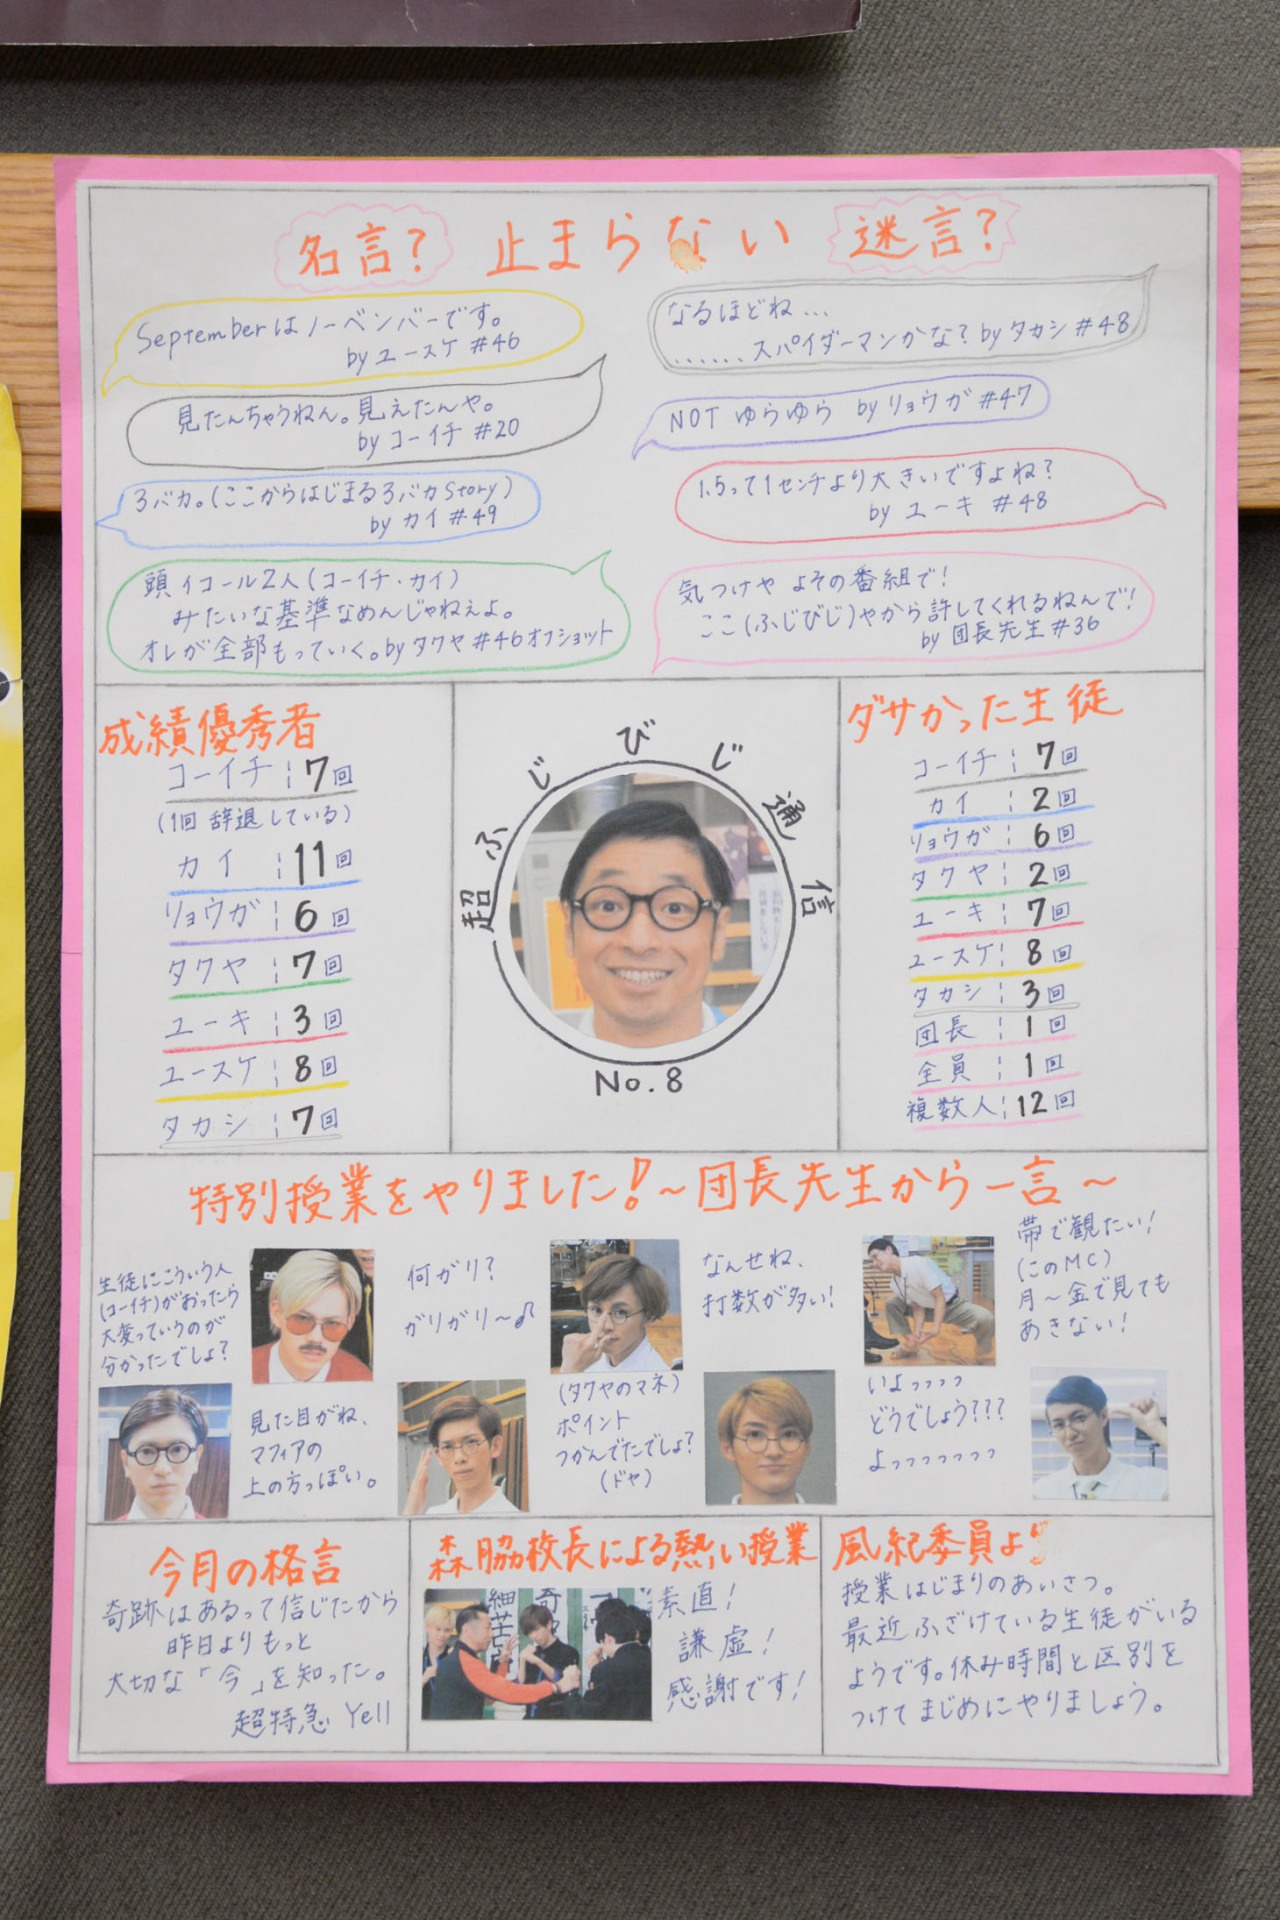 名言? 止まらない 迷言?
Septemberはノーベンバーです。
by ユースケ #46
なるほどね...
......スパイダーマンかな? by タカシ #48
見たんちゃうねん。見えたんや。
by コーイチ #20
NOT ゆらゆら by リョウガ #47
3バカ。(ここからはじまる3バカStory)
by カイ #49
1.5って1センチより大きいですよね?
by ユーキ #48
頭イコール2人(コーイチ・カイ)
みたいな基準なめんじゃねぇよ。
オレが全部もっていく。by タクヤ #46オフショット
気つけや よその番組で!
ここ(ふじびじ)やから許してくれるねんで!
by 団長先生 #36
成績優秀者
コーイチ:7回
(1回 辞退している)
カイ:11回
リョウガ:6回
タクヤ:7回
ユーキ:3回
ユースケ:8回
タカシ:7回
超ふじびじ通信
No.8
ダサかった生徒
コーイチ:7回
カイ:2回
リョウガ:6回
タクヤ:2回
ユーキ:7回
ユースケ:8回
タカシ:3回
団長:1回
全員:1回
複数人:12回
特別授業をやりました!~団長先生から一言~
生徒にこういう人
(コーイチ)がおったら
大変っていうのが
分かったでしょ?
見た目がね、
マフィアの
上の方っぽい。
何がり?
ガリガリ~♪
(タクヤのマネ)
ポイント
つかんでたでしょ?
(ドヤ)
なんせね、
打数が多い!
いよっっっっ
どうでしょう???
よっっっっっっっ
帯で観たい!
(このMC)
月~金で見ても
あきない!
今月の格言
奇跡はあるって信じたから
昨日よりもっと
大切な「今」を知った。
超特急 Yell
森脇校長による熱い授業
素直!
謙虚!
感謝です!
風紀委員より
授業はじまりのあいさつ。
最近ふざけている生徒がいる
ようです。休み時間と区別を
つけてまじめにやりましょう。